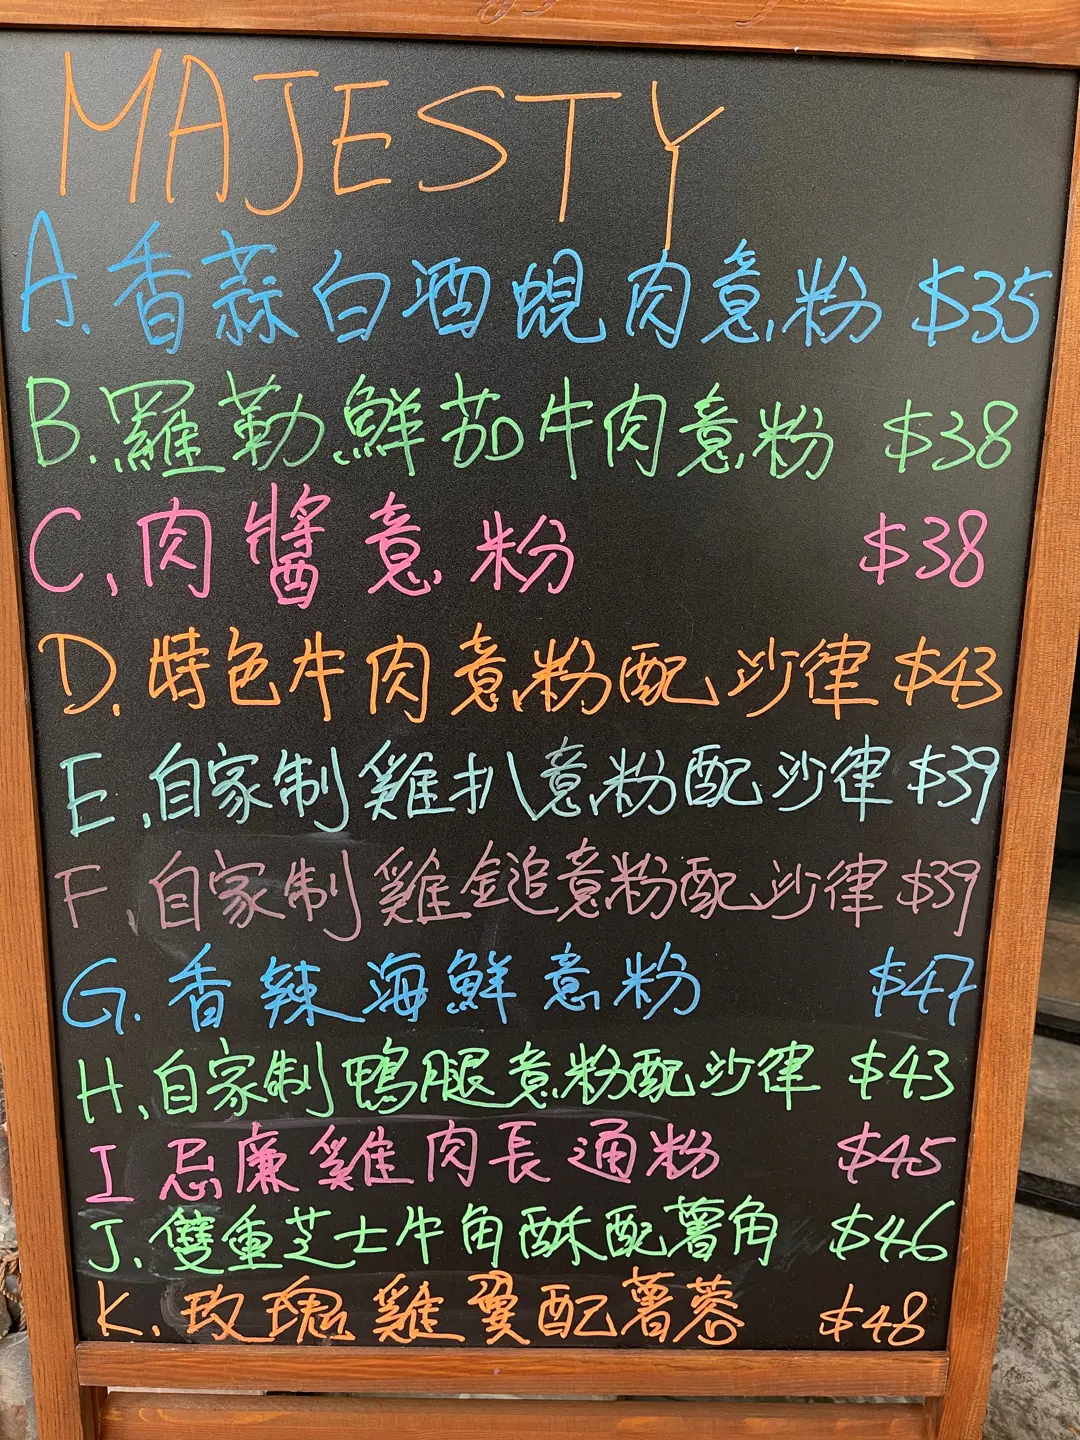 MAJESTY
A. 香蒜白酒蜆肉意粉 $35
B. 羅勒鮮茄牛肉意粉 $38
C. 肉醬意粉 $38
D. 特色牛肉意粉配沙律 $43
E. 自家制雞扒意粉配沙律 $39
F. 自家制雞鎚意粉配沙律 $39
G. 香辣海鮮意粉 $47
H. 自家制鴨腿意粉配沙律 $43
I 忌廉雞肉長通粉 $45
J. 雙重芝士牛角酥配薯角 $46
K. 玫瑰雞翼配薯蓉 $48